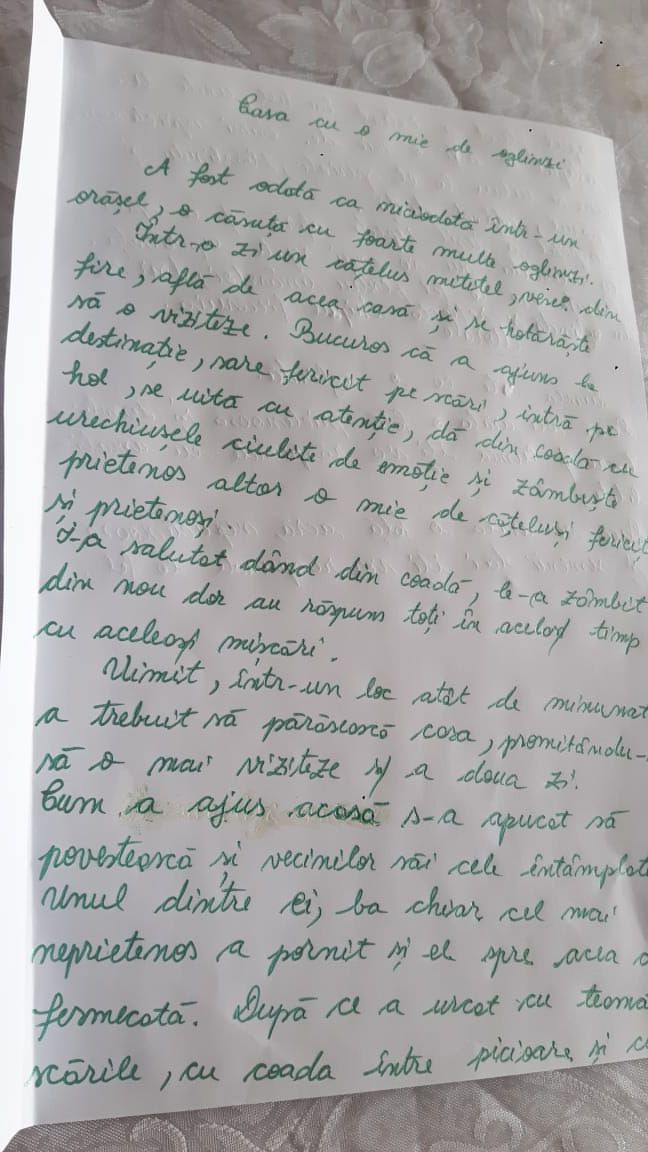 Casa cu o mie de oglinzi
A fost odată ca niciodată într-un
orășel, o căsuță cu foarte multe oglinzi.
Într-o zi un cățeluș mititel, vesel din
fire, află de acea casă și se hotărăște
să o viziteze. Bucuros că a ajuns la
destinație, sare fericit pe scări, intră pe
hol, se uită cu atenție, dă din coadă cu
urechiușele ciulite de emoție și zâmbește
prietenos altor o mie de cățeluși fericiți
și prietenoși.
I-a salutat dând din coadă, le-a zâmbit
din nou dar au răspuns toți în același timp
cu aceleași mișcări.
Uimit, într-un loc atât de minunat
a trebuit să părăsească casa, promițându-
să o mai viziteze și a doua zi.
Cum a ajus acasă s-a apucat să
povestească și vecinilor săi cele întâmplat
Unul dintre ei, ba chiar cel mai
neprietenos a pornit și el spre acea c
fermecată. După ce a urcat cu teamă
scările, cu coada între picioare și c